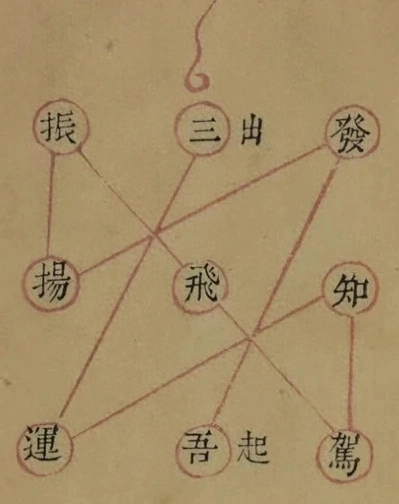 振 三出 發
揚 飛 知
運 吾起 駕